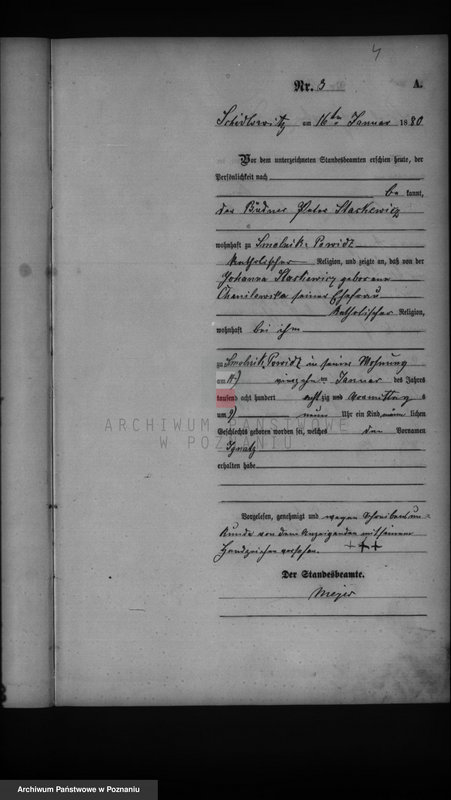 4
Nr. 3 A.
Schidlowitz am 16ten Januar 1880
Vor dem unterzeichneten Standesbeamten erschien heute, der
Persönlichkeit nach
be kannt,
der Büdner Peter Stachewicz
wohnhaft zu Smolnik-Powidz
katholischer Religion, und zeigte an, daß von der
Johanna Stachewicz geborene
seiner Ehefrau
katholischer Religion,
wohnhaft bei ihm
zu Smolnik-Powidz in seiner Wohnung
am vierzehnten Januar des Jahres
tausend acht hundert achtzig und Vormittag s
um neun Uhr ein Kind männlichen
Geschlechts geboren worden sei, welches den Vornamen
Ignatz
erhalten habe
Vorgelesen, genehmigt und wegen Schreibensun-
kunde von dem Anzeigenden mit seinem
Handzeichen versehen. +++
Der Standesbeamte.
Meyer
ARCHIWUM PAŃSTWOWE
W POZNANIU
Archiwum Państwowe w Poznaniu